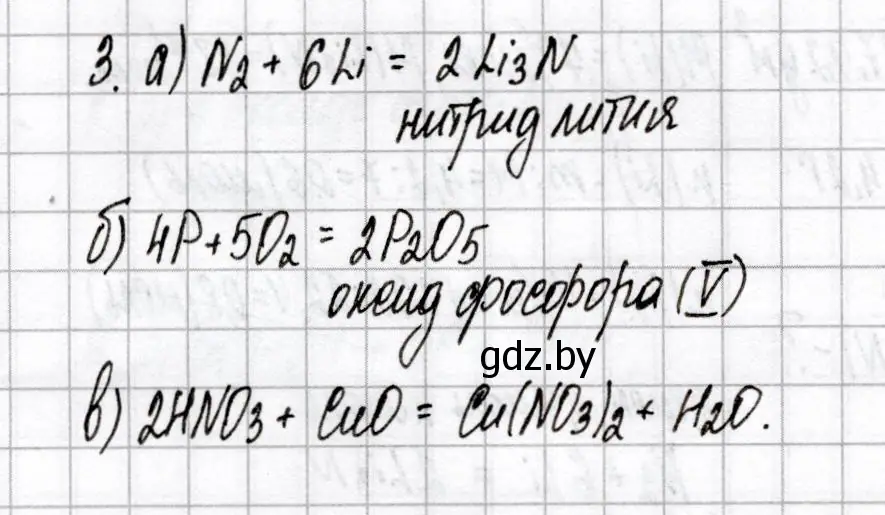 3. а) N₂ + 6Li = 2Li₃N
нитрид лития
б) 4P + 5O₂ = 2P₂O₅
оксид фосфора (V)
gdz.by
в) 2HNO₃ + CuO = Cu(NO₃)₂ + H₂O.